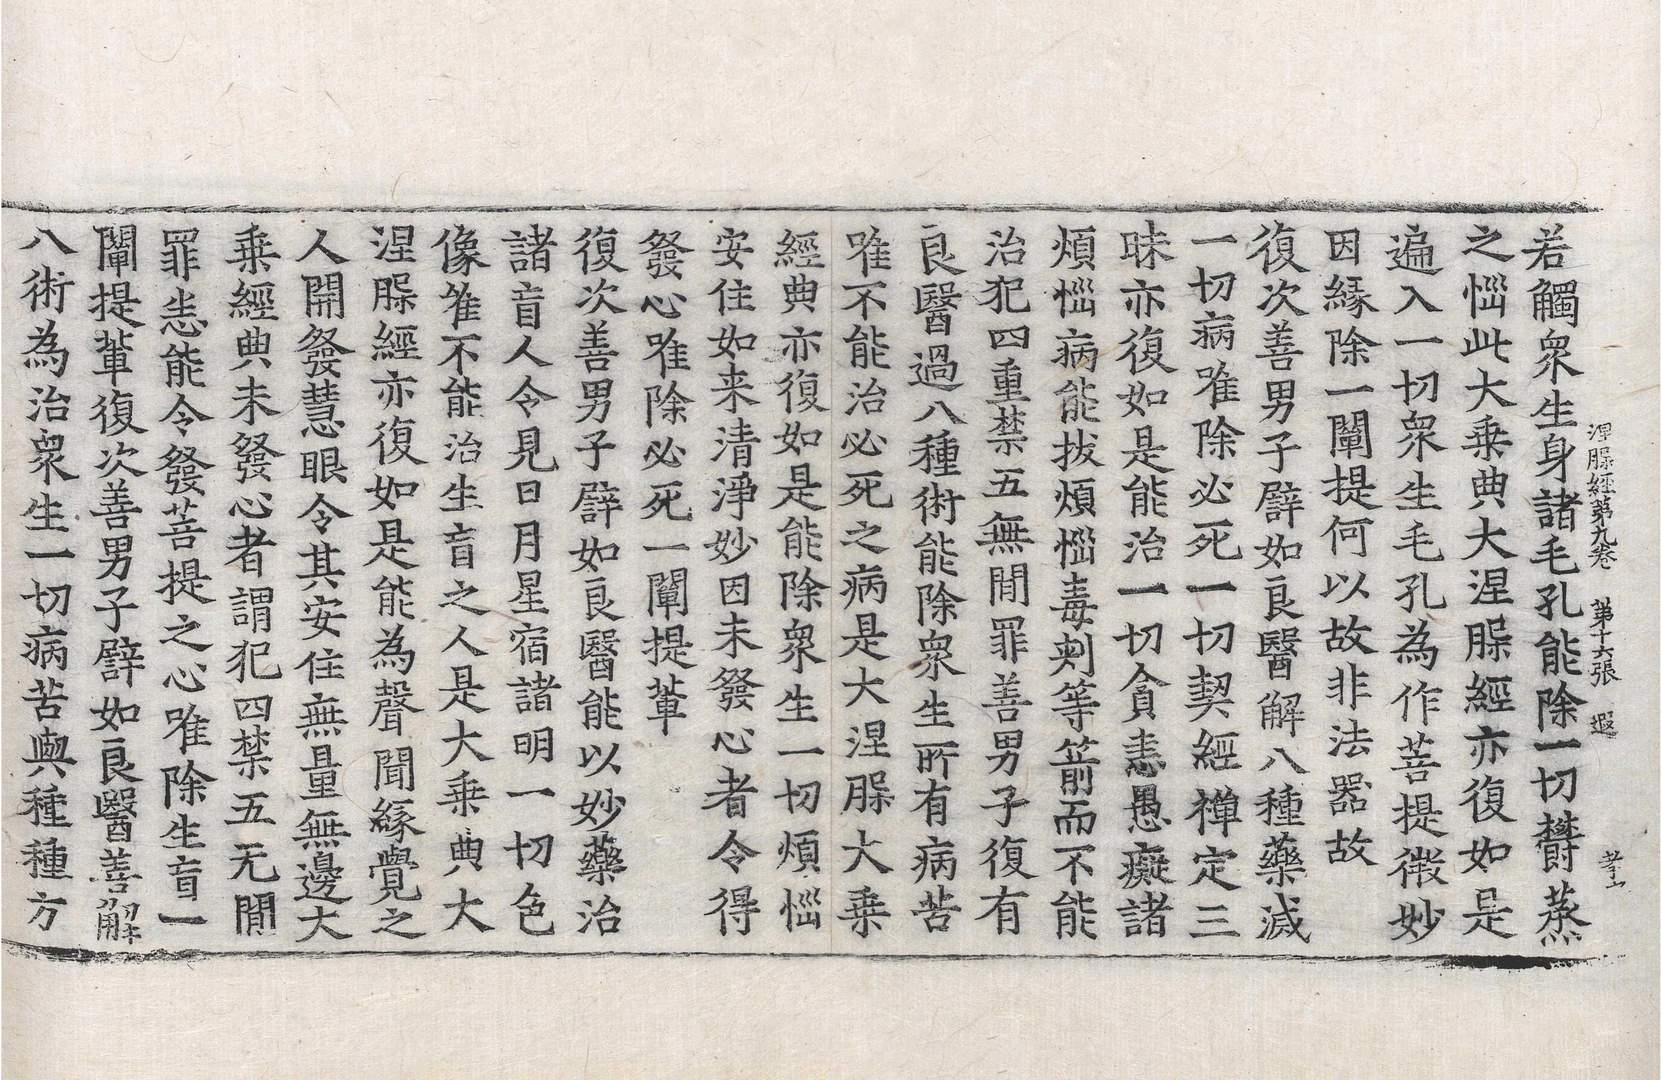 涅脲經第九卷　第十六張　遐
若觸衆生身諸毛孔能除一切欝蒸
之惱此大乗典大涅脲經亦復如是
遍入一切衆生毛孔為作菩提微妙
因縁除一闡提何以故非法器故
復次善男子譬如良醫解八種藥滅
一切病唯除必死一切契經禅定三
昧亦復如是能治一切貪恚愚癡諸
煩惱病能拔煩惱毒刾等箭而不能
治犯四重禁五無閒罪善男子復有
良醫過八種術能除衆生所有病苦
唯不能治必死之病是大涅脲大乗
經典亦復如是能除衆生一切煩惱
安住如来清淨妙因未發心者令得
發心唯除必死一闡提軰
復次善男子譬如良醫能以妙藥治
諸盲人令見日月星宿諸明一切色
像唯不能治生盲之人是大乗典大
涅脲經亦復如是能為聲聞緣覺之
人開發慧眼令其安住無量無邊大
乗經典未發心者謂犯四禁五无閒
罪恚能令發菩提之心唯除生盲一
闡提軰復次善男子譬如良醫善解
八術為治衆生一切病苦與種種方